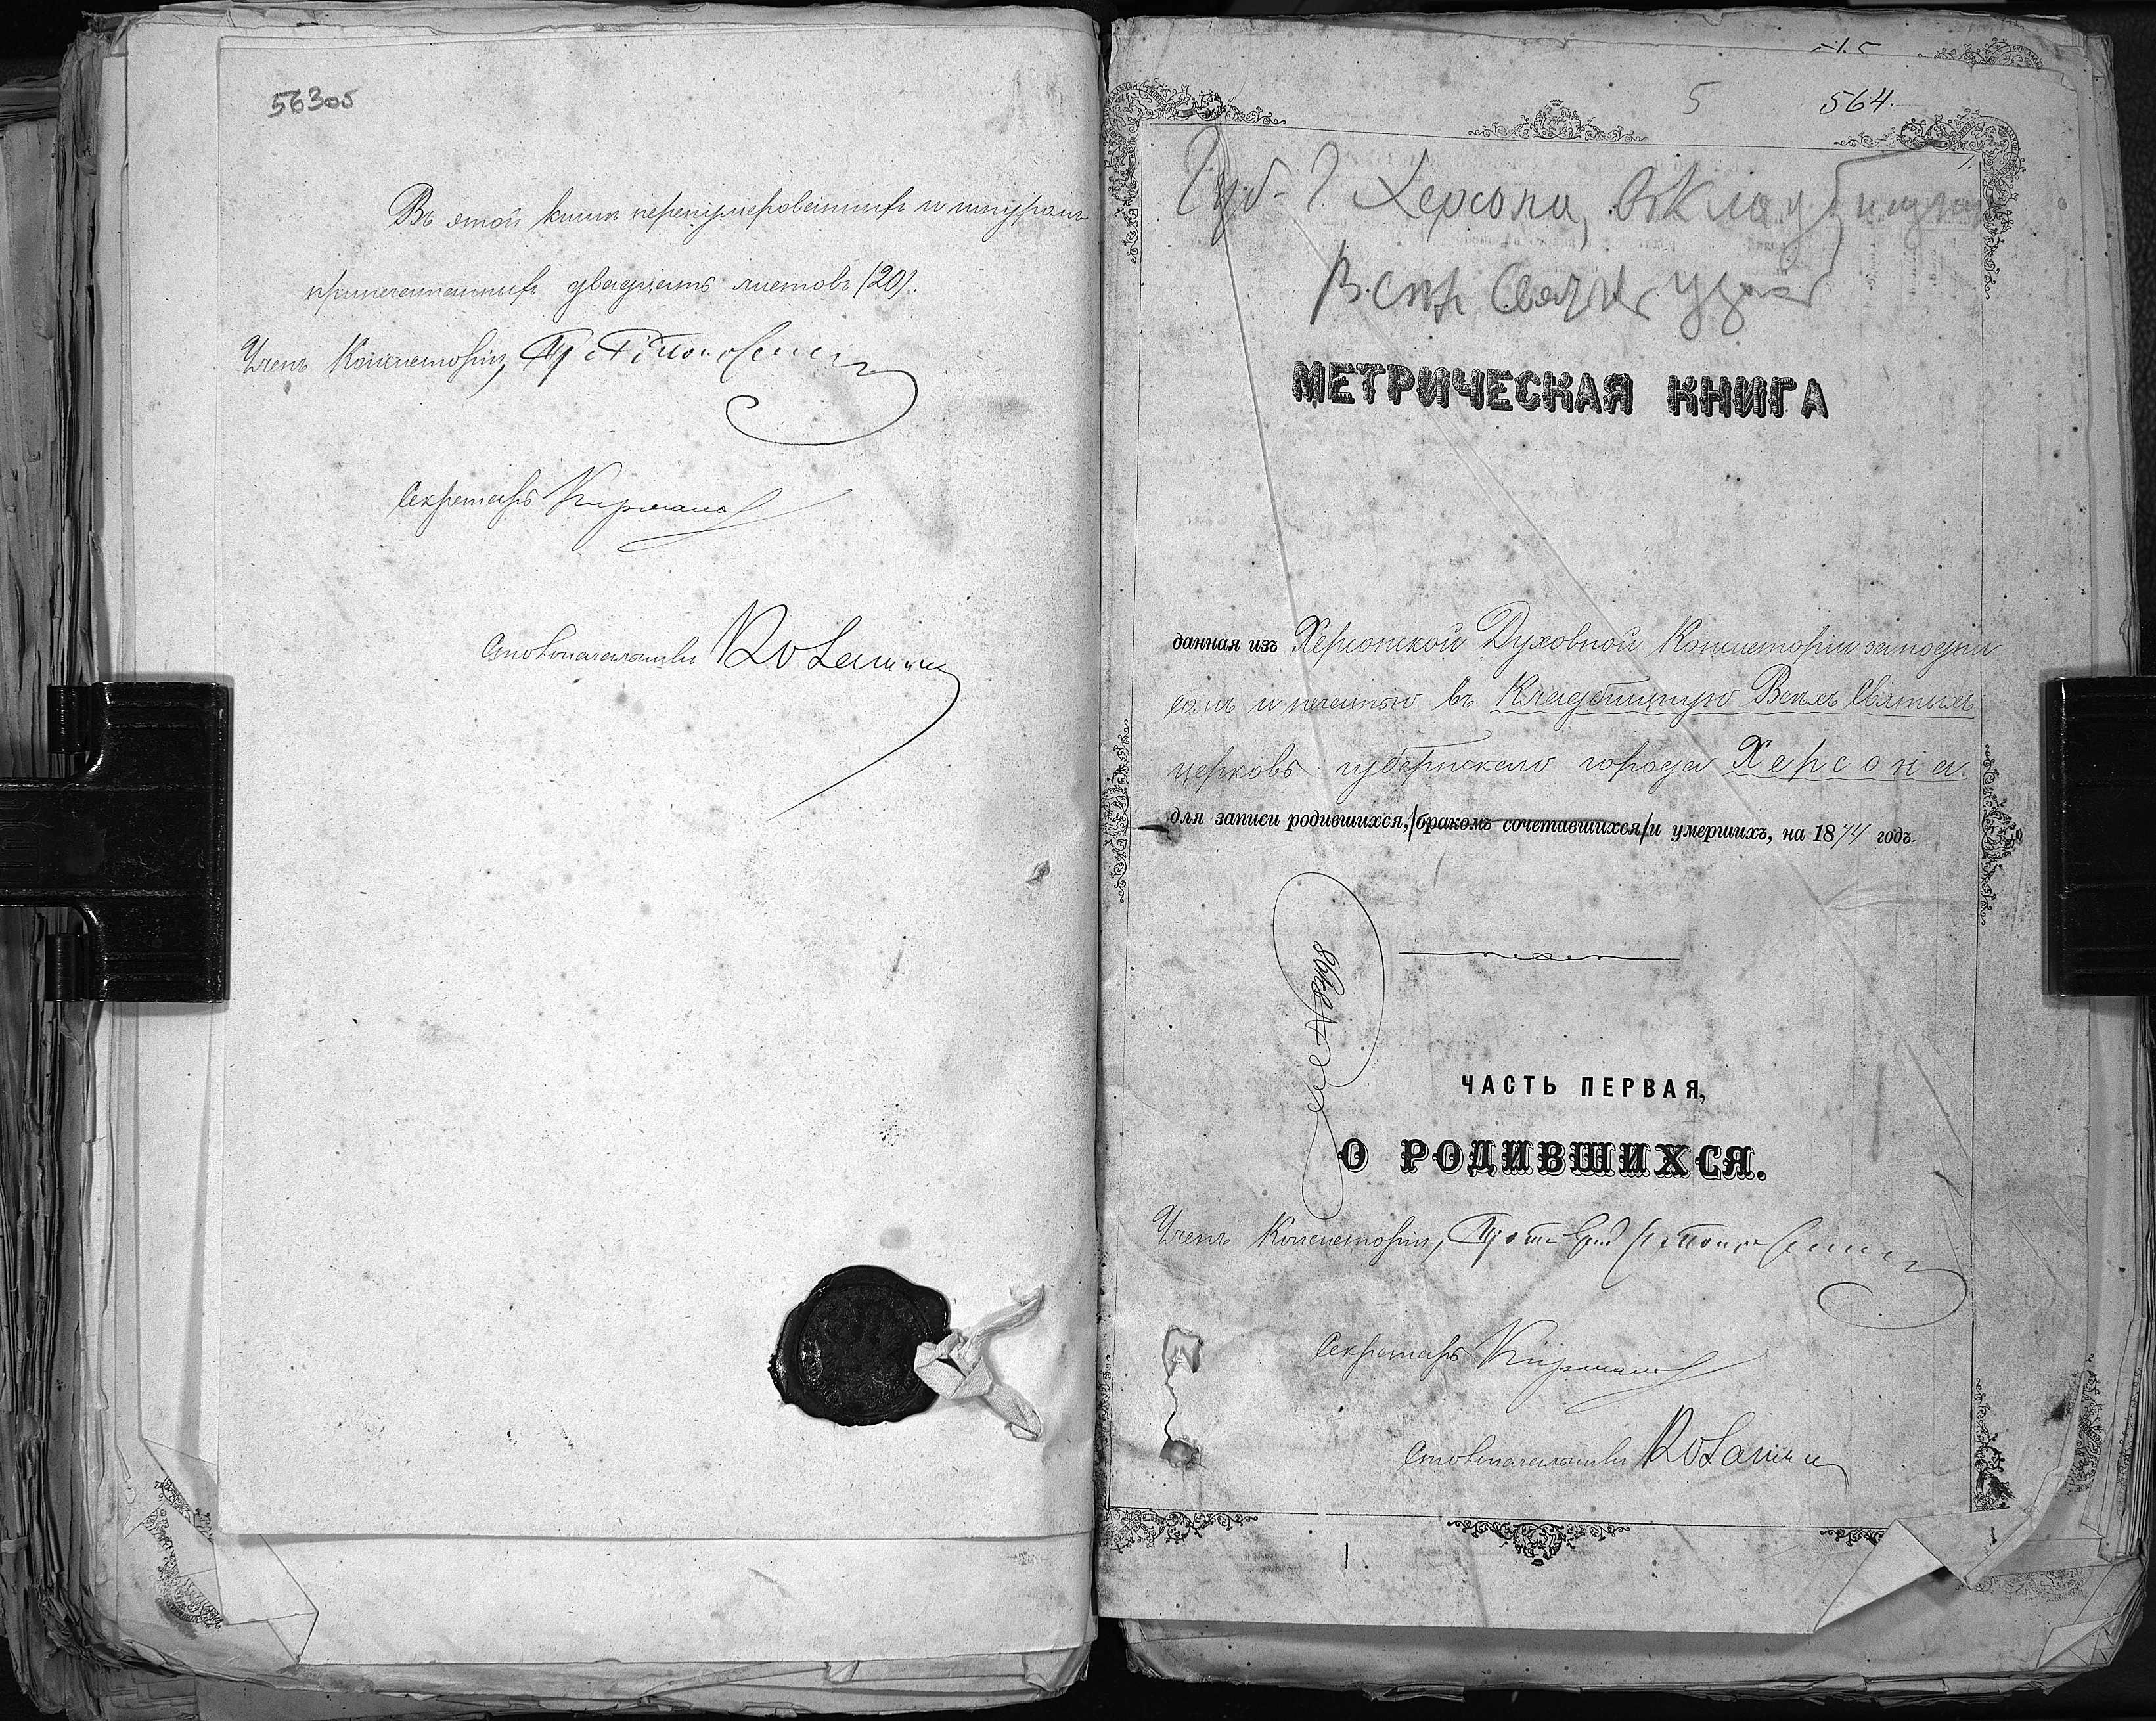 563об
Въ этой книгѣ перенумерованныхъ и шнуромъ
припечатанныхъ двадцать листовъ (20).
Членъ Консисторіи,
Секретарь
Столоначальникъ
5 564.
1.
Губ. г. Херсона, Кладбищен
Всѣх Святых
МЕТРИЧЕСКАЯ КНИГА
данная изъ Херсонской Духовной Консисторіи за подпи
сомъ и печатью въ Кладбищную Всѣхъ Святыхъ
церковь губернскаго города Херсона.
для записи родившихся, бракомъ сочетавшихся и умершихъ, на 1874 годъ.
ЧАСТЬ ПЕРВАЯ,
О РОДИВШИХСЯ.
Членъ Консисторіи,
Секретарь
Столоначальникъ